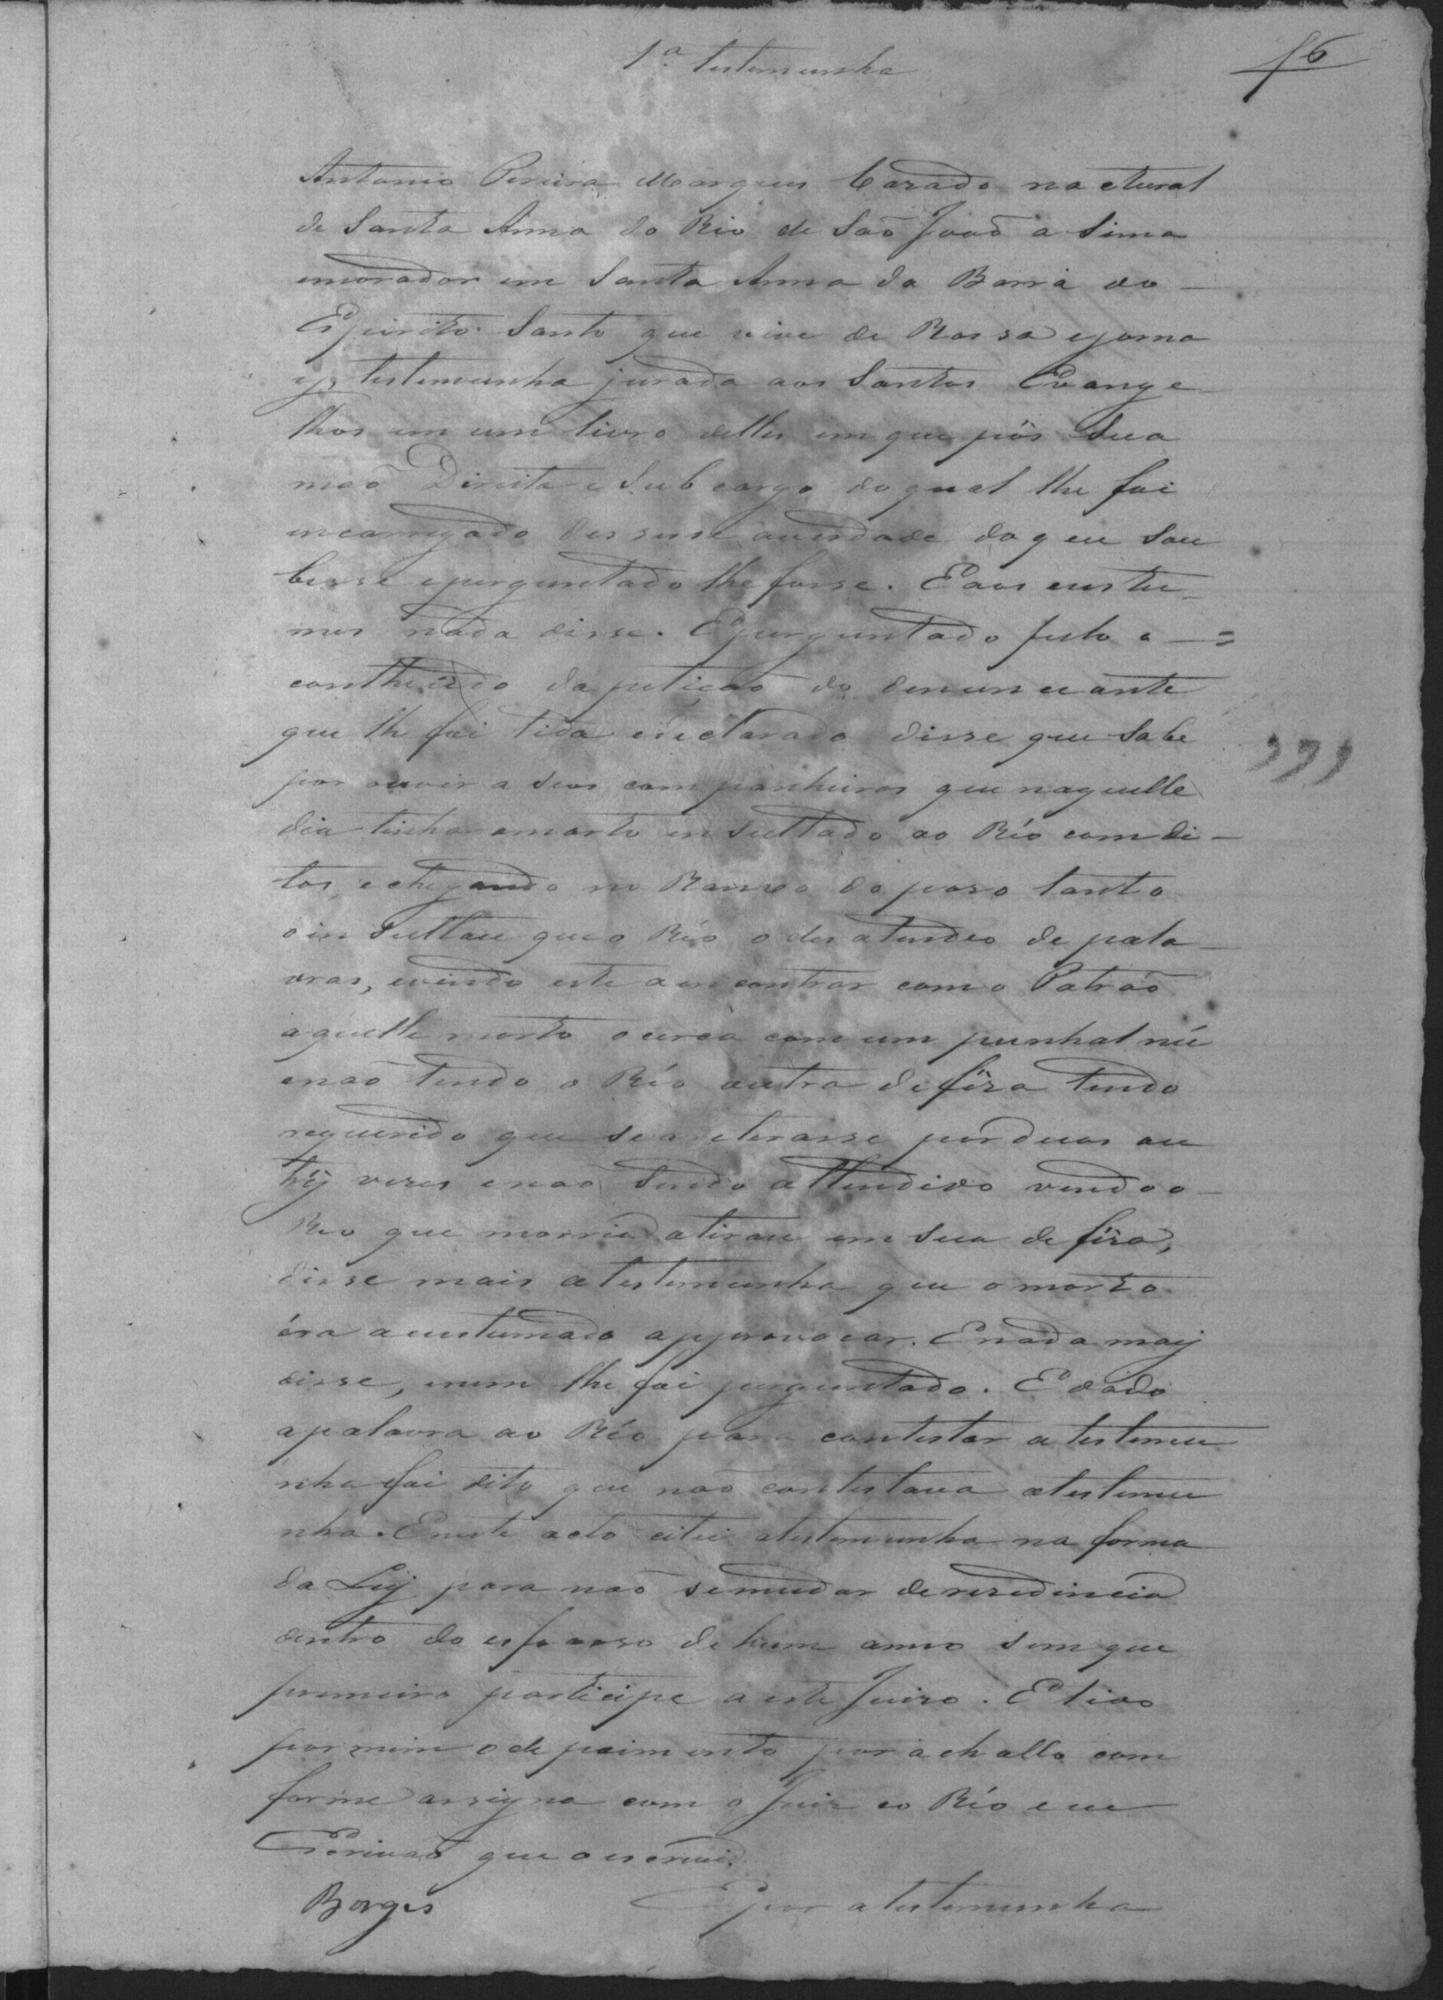 1ª testemunha
16
Antonio Pereira Marques Cazado natural
de Santa Anna do Rio de São João a sima
emorador em Santa Anna da Barra do
Espirito Santo que vive de Rossa ejorna
ys testemunha jurada aos Santos Evange
lhos em um livro delles em que pôs sua
mão Direita e sub cargo do qual lhe foi
incarregado dissese averdade doque sou
besse eperguntado lhe fosse. Eaos custu
mes nada disse. Eperguntado pelo o
conthiúdo da petição do denunciante
que lhe foi lida edeclarada disse que sabe
por ouvir a seus companheiros que naquelle
dia tinha omorto insultado ao Réo com di
tos, echegando no Rancho do pozo tanto
oinsultou queo Réo o desatendeo de pala
vras, evindo este aencontrar como Patrão
aquelle morto ocerca com um punhal nú
enão tendo o Réo outra defêza tendo
requerido que searetirasse porduas ou
trÿ vezes enão sendo attendido vendoo
Reo que morria atirou em sua defêza,
disse mais atestemunha que omorto
éra acustumado approvocar. Enada maÿ
disse, enem lhe foi perguntado. Edada
apalavra ao Réo para contestar atestemu
nha foi dito que não contestava atestemu
nha. Eneste acto citei atestemunha na forma
da Leÿ para não semudar deresidencia
dentro do espasso de hum anno sem que
premeiro participe a este Juizo. Elido
por mim odepoimento por achallo com
forme assigna com o Juiz eo Réo e eu
Escrivão que oescrevi.
Borges Epor atestemunha